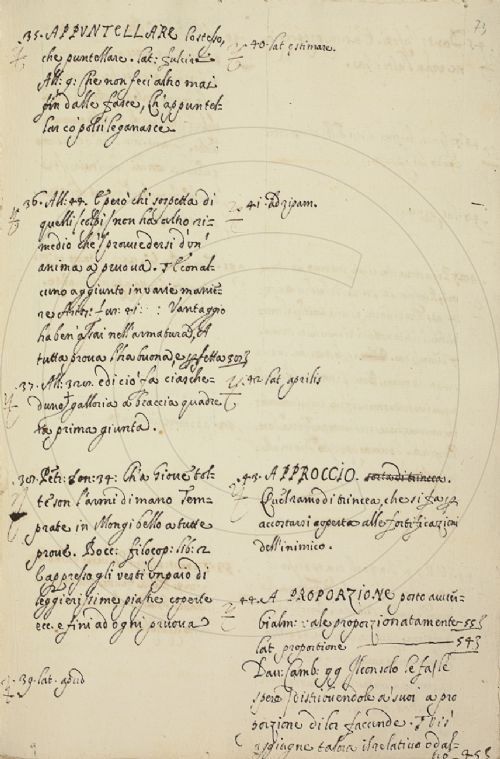 73
35. APPUNTELLARE lo stesso,
che puntellare. lat: fulcire
All: 9: Che non feci altro mai
fin dalle fasce, Ch'appuntel-
lar co' polsi le ganasce
36. All: 44. E però chi sospetta di
quelli colpi non ha altro ri-
medio che provvedersi d'un'
anima a pruova. E con al-
cuno aggiunto in varie manie-
re Ario: fur: 41: : Vantaggio
ha ben assai nell'armatura, A
tutta prova l'ha buona, e perfetta 303
37. All: edi ciò fa ciasche-
duno galloria a braccia quadre
la prima giunta.
38. Petr: son: 34: Ch'a Giove tol-
te son l'armi di mano Tem-
prate in Mongibello a tutte
prove. Bocc: filocop: lib: 2
E appresso gli vestì un paro di
leggierissime piastre coperte
ecc. e fini ad ogni pruova
39. lat. apud
40. lat estimare.
41. ad ripam.
42. lat aprilis
43. APPROCCIO.
Quel ramo di trincea, che si fa p
accostarsi coperto alle fortificazioni
dell'inimico.
44. A PROPORZIONE posto avver-
bialm: vale proporzionatamente 553
lat proportione 543
Dav: Camb: 99 Il consolo le fa sue
spese distribuendole a' suoi a pro
porzione di lor faccende. E vi si
aggiugne talora il relativo o dal-